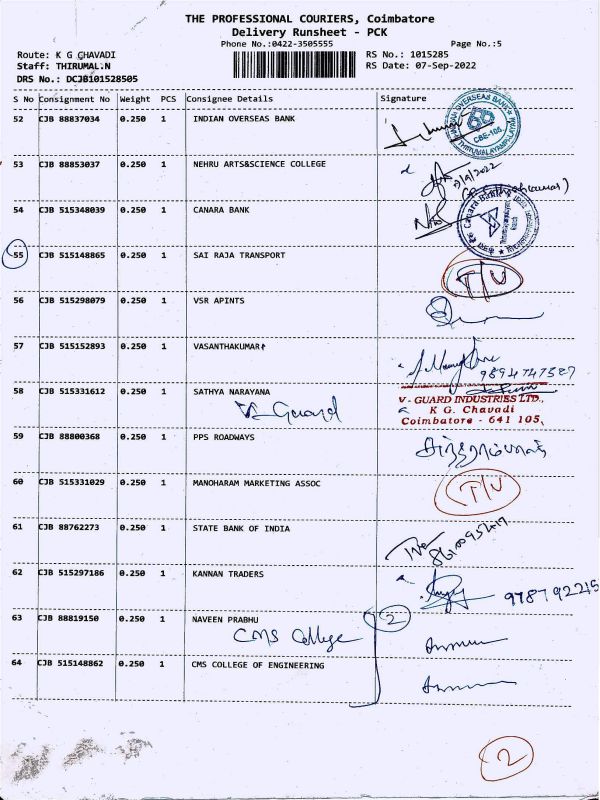 THE PROFESSIONAL COURIERS, Coimbatore
Delivery Runsheet - PCK
Phone No.:0422-3505555 Page No.:5
Route: K G CHAVADI RS No.: 1015285
Staff: THIRUMAL.N RS Date: 07-Sep-2022
DRS No.: DCJB101528505
S No Consignment No Weight PCS Consignee Details Signature
52 CJB 88837034 0.250 1 INDIAN OVERSEAS BANK
INDIAN OVERSEAS BANK
CBE-105
53 CJB 88853037 0.250 1 NEHRU ARTS&SCIENCE COLLEGE
54 CJB 515348039 0.250 1 CANARA BANK
Canara Bank
55 CJB 515148865 0.250 1 SAI RAJA TRANSPORT T/U
56 CJB 515298079 0.250 1 VSR APINTS
57 CJB 515152893 0.250 1 VASANTHAKUMAR
9894747587
58 CJB 515331612 0.250 1 SATHYA NARAYANA
V-Guard
V - GUARD INDUSTRIES LTD.,
K G. Chavadi
Coimbatore - 641 105,
59 CJB 88800368 0.250 1 PPS ROADWAYS
60 CJB 515331029 0.250 1 MANOHARAM MARKETING ASSOC T/U
61 CJB 88762273 0.250 1 STATE BANK OF INDIA
62 CJB 515297186 0.250 1 KANNAN TRADERS
63 CJB 88819150 0.250 1 NAVEEN PRABHU 2
CMS College
64 CJB 515148862 0.250 1 CMS COLLEGE OF ENGINEERING
2